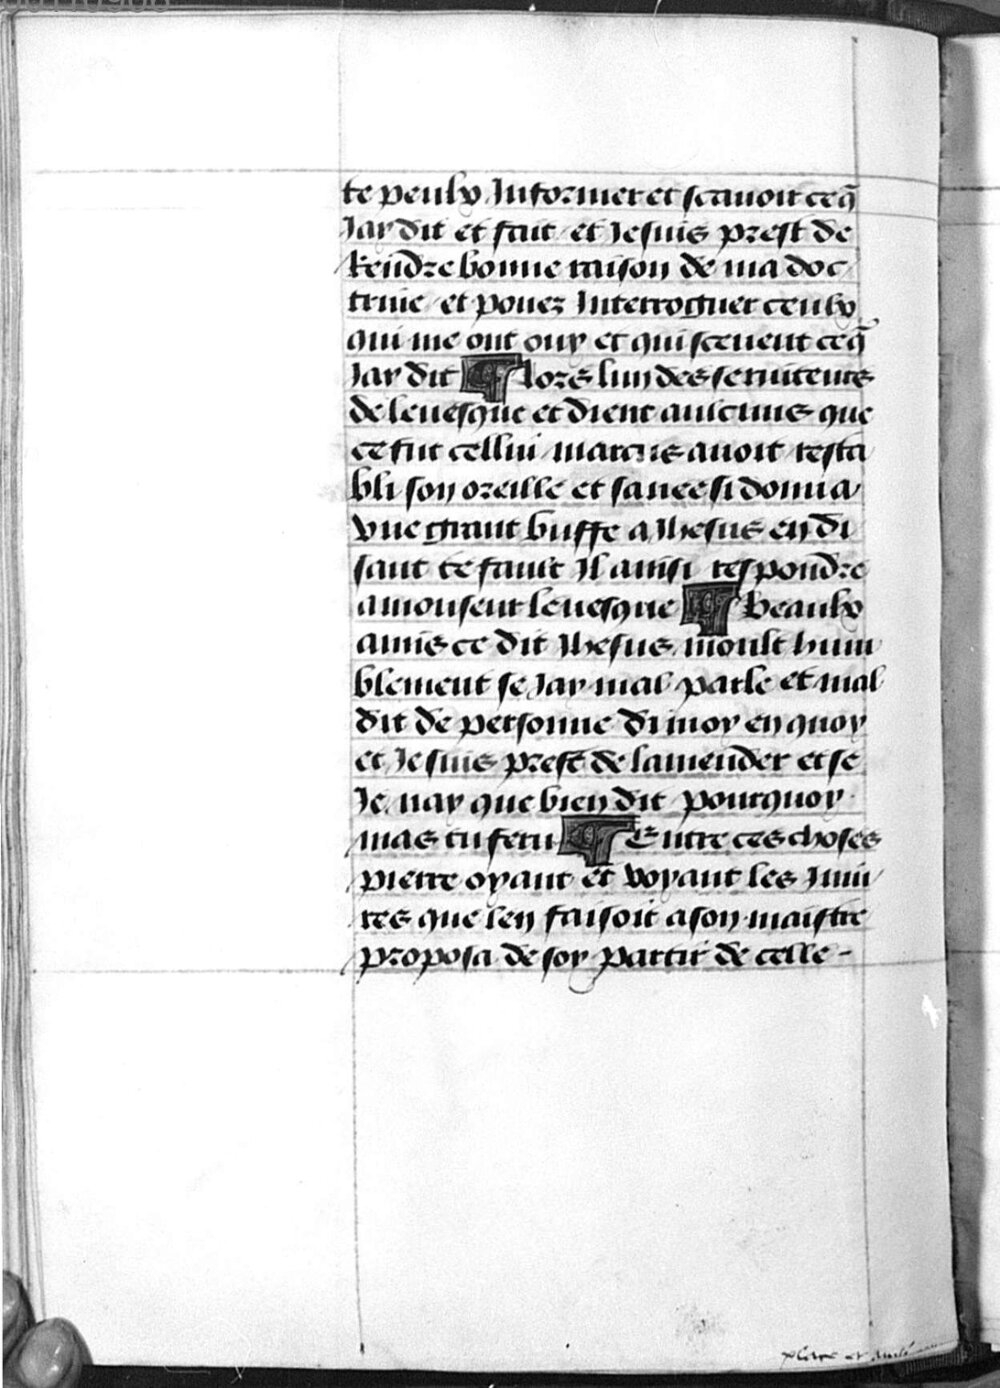 te peulx Informer et scauoir ceq̃
Jay dit et fait et Je suis prest de
Rendre bonne raison de ma doc
trine et pouez Interroguer ceulx
qui me ont ouy et qui sceuent ceq̃
Jay dit ¶ lors lun des seruiteurs
de leuesque et dient aulcuns que
ce fut cellui marcus auoit resta
bli son oreille et sanee si donna
vne grant buffe a Jhesus en di
sant te fault Il ainsi respondre
a monseur leuesque ¶ beaulx
amis ce dit Jhesus moult hum
blement se Jay mal parle et mal
dit de personne di moy en quoy
et Je suis prest de lamender et se
Je nay que bien dit pourquoy
mas tu feru ¶ Entre ces choses
pierre oyant et voyant les Iniu
res que len faisoit a son maistre
proposa de soy partir de celle -
place et